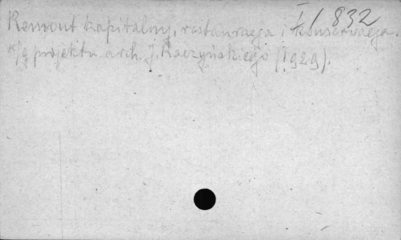 I/1832
Remont kapitalny, restauracja i konserwacja.
w/g projektu arch. J. Raczyńskiego (1929).